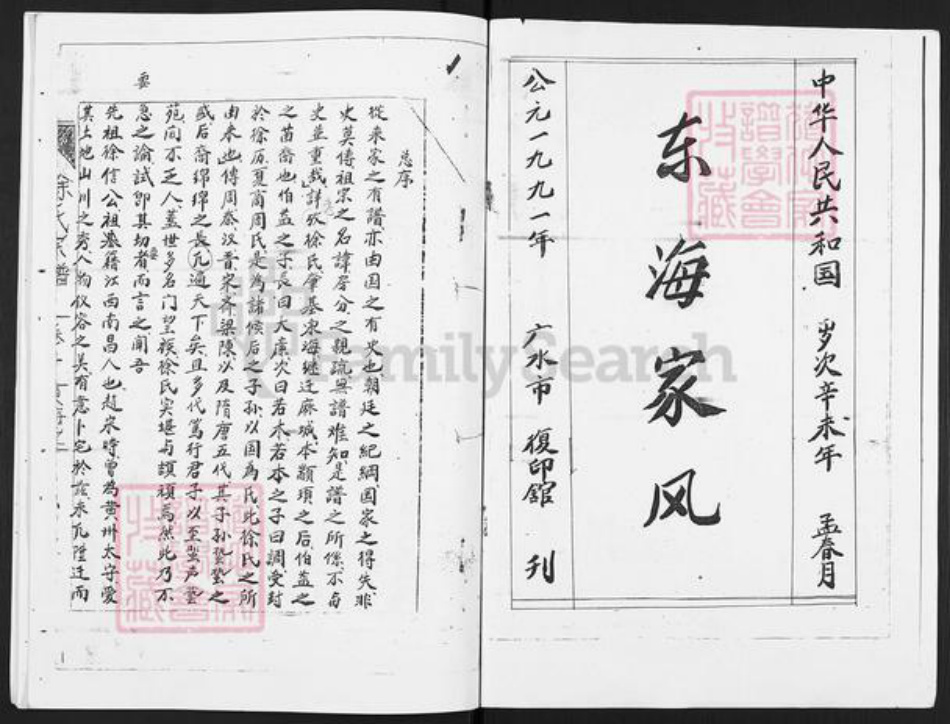 中华人民共和国 岁次辛未年 孟春月
东海家风
公元一九九一年 广水市 復印舘 刊
总序
從来家之有譜亦由国之有史也朝廷之紀綱國家之得失非
史莫傳祖宗之名諱房分之親疏無譜难知是譜之所係不与
史並重哉詳攷徐氏肇基東海継迁麻城本顓頊之后伯益之
之苗裔也伯益之子長曰大廉次曰若木若本之子曰調受封
於徐厉夏商周氏是為諸候后之子孙以国為氏此徐氏之所
由来也傳周秦汉晋宋齐梁陳以及隋唐五代其子孙蟄蟄之
盛后裔綿綿之長瓦遍天下矣且多代篤行君子以至蜚声
苑间不乏人蓋世多名门望族徐氏实堪与頡頏焉然此乃不
急之論試即其切者而言之闻吾
要
先祖徐信公祖基籍江西南昌人也趙宋時曾為黄州太守爱
其土地山川之秀人物仪容之美有意卜宅於兹来瓦陞迁而
徐氏宗譜
FamilySearch